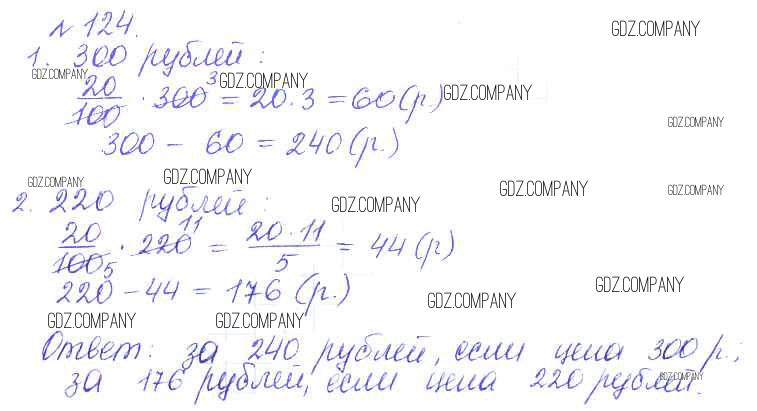 № 124.
GDZ.COMPANY
1. 300 рублей:
GDZ.COMPANY GDZ.COMPANY GDZ.COMPANY
20/100 · 300 3 = 20·3 = 60 (р.)
GDZ.COMPANY
300 – 60 = 240 (р.)
GDZ.COMPANY GDZ.COMPANY GDZ.COMPANY GDZ.COMPANY
2. 220 рублей:
GDZ.COMPANY
20/100 5 · 220 11 = 20·11/5 = 44 (р)
220 – 44 = 176 (р.)
GDZ.COMPANY GDZ.COMPANY
GDZ.COMPANY GDZ.COMPANY
Ответ: за 240 рублей, если цена 300 р.;
за 176 рублей, если цена 220 рублей.
GDZ.COMPANY